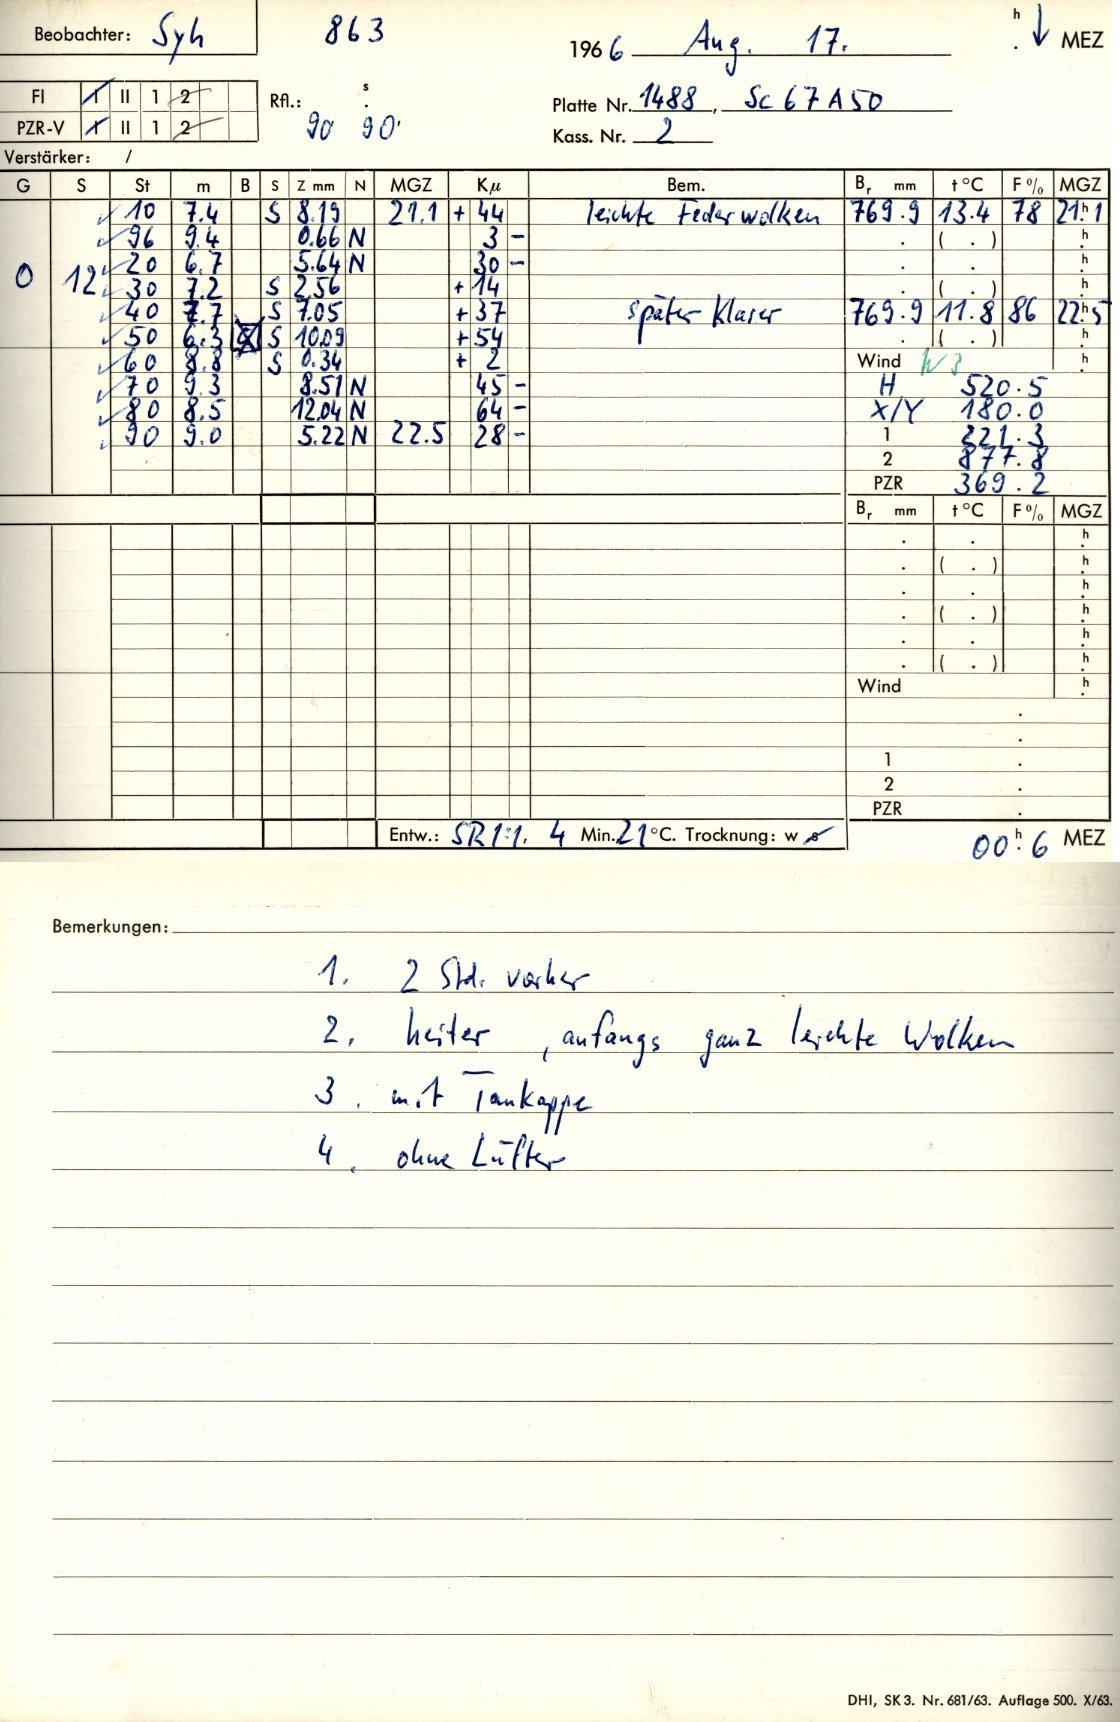 Beobachter: Syh 863 1966 Aug. 17. h . ↓ MEZ
FI I II 1 2 Rfl.: s . Platte Nr. 1488, Sc 67 A 50
PZR-V I II 1 2 90 90' Kass. Nr. 2
Verstärker: /
G S St m B S Z mm N MGZ Kµ Bem. Br mm t °C F % MGZ
10 7.4 S 8.19 21.1 + 44 leichte Federwolken 769.9 13.4 78 21h.1
96 9.4 0.66 N 3 - . ( . ) h.
20 6.7 5.64 N 30 - . . h.
0 12 30 7.2 S 2.56 + 14 . ( . ) h.
40 7.7 S 7.05 + 37 später klarer 769.9 11.8 86 22h.5
50 6.3 S 10.09 + 54 . ( . ) h.
60 8.8 S 0.34 + 2 Wind W 3 h.
70 9.3 8.51 N 45 - H 520.5
80 8.5 12.04 N 64 - X/Y 180.0
90 9.0 5.22 N 22.5 28 - 1 221.3
2 877.8
PZR 369.2
Br mm t °C F % MGZ
. . h.
. ( . ) h.
. . h.
. ( . ) h.
. . h.
. ( . ) h.
Wind h.
.
.
1 .
2 .
PZR .
Entw.: SR 1:1, 4 Min. 21 °C. Trocknung: w s 00h.6 MEZ
Bemerkungen:
1. 2 Std. vorher
2. heiter, anfangs ganz leichte Wolken
3. mit Taukappe
4. ohne Lüfter
DHI, SK 3. Nr. 681/63. Auflage 500. X/63.